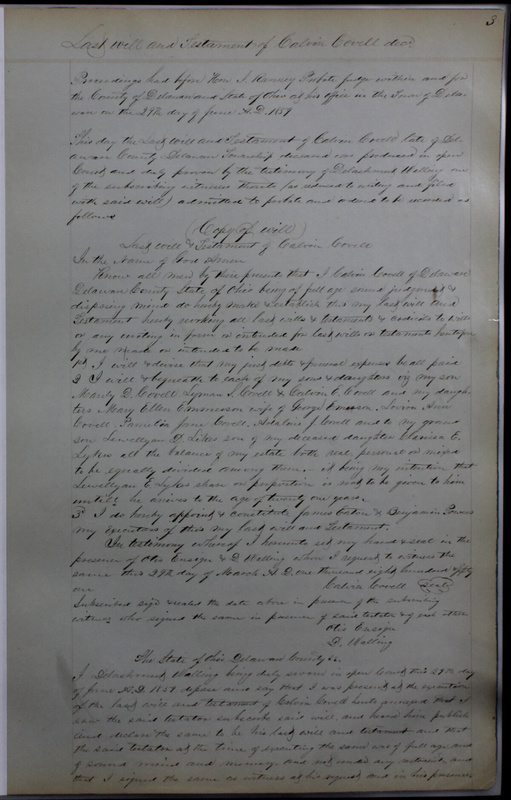 3
Last Will and Testament of Calvin Covell decd.
Proceedings had before Hon. T. Ranney Probate judge within and for
the County of Delaware and State of Ohio at his office in the Town of Dela-
ware on the 29th day of June A.D. 1859
This day the Last Will and Testament of Calvin Covell late of Del-
aware County Delaware Township deceased was produced in open
Court and duly proven by the testimony of Delachmus Walling one
of the subscribing witnesses thereto (as reduced to writing and filed
with said will) admitted to probate and ordered to be recorded as
follows
(Copy of will)
Last will & Testament of Calvin Covell
In the Name of God Amen
Know all men by these presents that I Calvin Covell of Delaware
Delaware County State of Ohio being of full age sound judgement &
disposing mind do hereby make & establish this my last will and
Testament hereby revoking all last wills & testaments & codicils to wills
or any writing in form or intended for last wills or testaments heretofore
by me made or intended to be made
1st I will & devise that my just debts & funeral expenses be all paid
2 I will & bequeath to each of my sons & daughters viz my son
D. Covell Lyman I. Covell & Calvin C. Covell and my daugh-
ters Mary Ellen Emmerson wife of George Emerson, Lovina Ann
Covell Pamelia Jane Covell, Adeline J Covell and to my grand
son Lewellyan D. Likes son of my deceased daughter Clarisa E.
Lykes all the balance of my estate both real personal or mixed
to be equally divided among them. - it being my intention that
Lewellyan E Lykes share or proportion is not to be given to him
untill he arrives to the age of twenty one years.
3d I do hereby appoint & constitute James Eaton & Benjamin Powers
my executors of this my last will and Testament.
In testimony whereof I hereunto set my hand & seal in the
presence of Otis Ensign & D. Walling whom I request to witness the
same this 29th day of March A.D. one thousand eight hundred & fifty
one
Calvin Covell (Seal)
Subscribed signd & sealed the date above in presence of the subscribing
witness who signed the same in presence of said testator & of each other
Otis Ensign
D. Walling
The State of Ohio Delaware County ss.
I Delachmus Walling being duly sworn in open Court this 29th day
of June A.D. 1859 depose and say that I was present at the execution
of the last will and testament of Calvin Covell hereto annexed that I
saw the said testator subscribe said will, and heard him publish
and declare the same to be his last will and testament and that
the said testator at the time of executing the same was of full age and
of sound mind and memory and not under any restraint, and
that I signed the same as witness at his request and in his presence